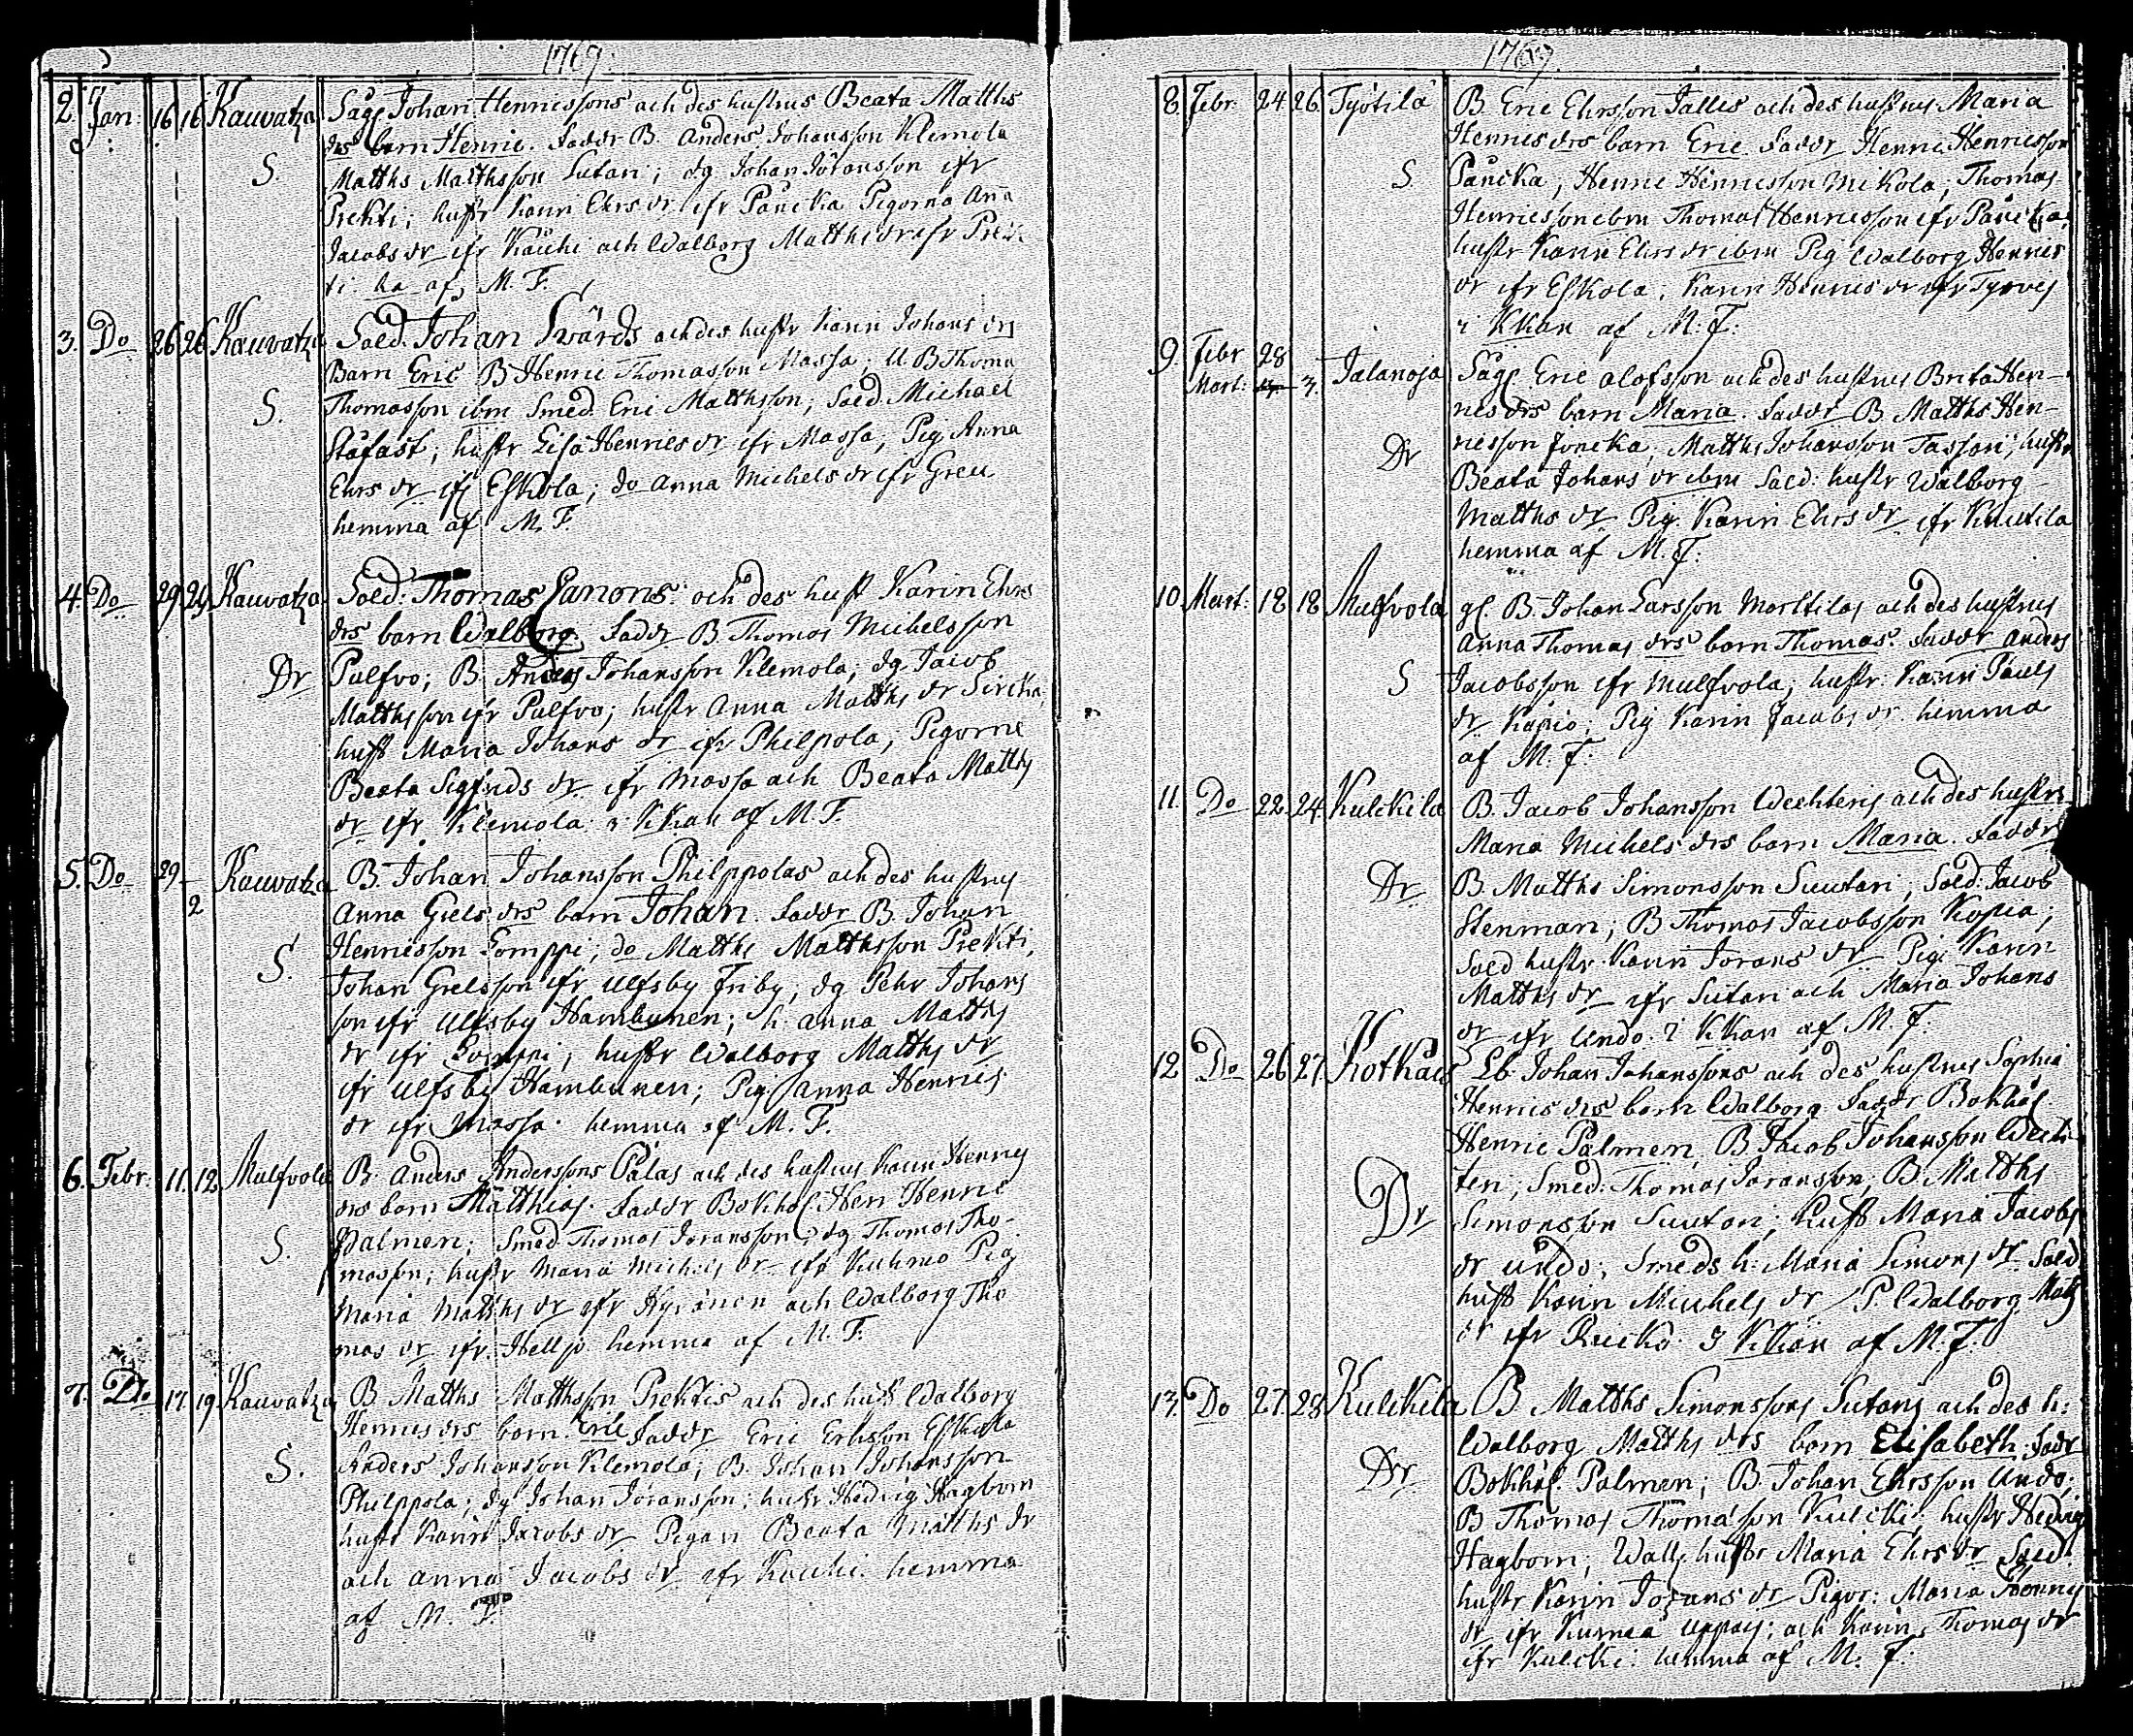 1769.
2. Jan: 16 16 Kauvatza Såg Johan Henricssons och des hustrus Beata Matths
drs barn Henric. Faddr B. Anders Johansson Klemola
S. Matths Matthsson Sutari; dg Johan Jöransson ifr
Prekti; hustr Karin Ehrs dr ifr Päncka Pigorna Anna
Jacobs dr ifr Käuhi och Walborg Matths dr ifr Prek
ti. af M. F.
3. Do 26 26 Kauvatza Sold. Johan Swärds och des hustr Karin Johans drs
Barn Eric B Henric Thomasson Massa; U B Thoma
S. Thomasson ibm Smed. Eric Matthsson; Sold. Michael
Stäfast; hustr Lisa Henrics dr ifr Massa, Pig Anna
Ehrs dr ifr Eskola; do Anna Michels dr ifr Greu
hemma af M. F.
4. Do 29 29 Kauvatza Sold. Thomas Canons. och des hust Karin Ehrs
drs barn Walborg. Faddr B Thomas Michelsson
Dr Pulfvo; B. Anders Johansson Klemola; dg Jacob
Matthsson ifr Pulfvo; hustr Anna Matths dr Sircka,
hust Maria Johans dr ifr Philpola; Pigorne
Beata Sigfrids dr ifr Massa och Beata Matths
dr ifr Klemola i Kkan af M. F.
5. Do 29 Kauvatza B. Johan Johansson Philppolas och des hustrus
2 Anna Giels drs barn Johan. Faddr B. Johan
Henricsson Lomppi, do Matths Matthsson Prekti,
S. Johan Grelsson ifr Ulfsby Friby; dg Pehr Johans
son ifr Ulfsby Hambunen; h. Anna Matths
dr ifr Lomppi; hustr Walborg Matths dr
ifr Ulfsby Hambunen; Pig Anna Henrics
dr ifr Massa. hemma af M. F.
6. Febr. 11. 12. Mulfvola B. Anders Anderssons Palas och des hustrus Karin Henrics
drs barn Matthias. Faddr Bokhol. Herr Henric
S. Palmen; Smed Thomas Jöransson; dg Thomas Tho-
masson; hustr Maria Michels dr ifr Kuhmo Pig
Maria Matths dr ifr Hyränen och Walborg Tho
mas dr ifr. Heljo hemma af M. F.
7. Do 17. 19. Kauvatza B. Matths Matthsson Prektis och des hust Walborg
Henrics drs barn. Eric Faddr Eric Ersson Eskola
S. Anders Johansson Klemola; B. Johan Johansson
Philppola; dg Johan Jöransson; hustr Hedvig Hagborn
hustr Karin Jacobs dr Pigan Beata Matths dr
och Anna Jacobs dr ifr Kauhi. hemma
af M. F.
1769.
8. Febr. 24. 26. Työtilä B. Eric Ehrsson Talles och des hustrus Maria
Henrics drs barn Eric. Faddr Henric Henricsson
S. Päncka, Henric Henricsson Mikola, Thomas
Henricsson ibm Thomas Henricsson ifr Päncka,
hustr Karin Ehrs dr ibm Pig Walborg Henrics
dr ifr Eskola; Karin Henrics dr ifr Tyrvis
i Kkan af M: F:
9. Febr 28
Mart: 3. Jalanoja Såg. Eric Olofsson och des hustrus Brita Hen-
rics drs barn Maria. Faddr B Matths Hen-
Dr ricsson Joncka; Matths Johansson Tasson; hustr
Beata Johans dr ibm Sold: hustr Walborg
Matths dr Pig Karin Ehrs dr ifr Knutila
hemma af M. F.
10. Mart: 18 18 Mulfvola gl. B. Johan Larsson Marttilas och des hustrus
Anna Thomas drs barn Thomas. Faddr Anders
S Jacobsson ifr Mulfvola; hustr. Karin Påuls
dr Kapio; Pig Karin Jacobs dr hemma
af M. F.
11. Do 22. 24. Kulckila B. Jacob Johansson Wechteris och des hustrs
Maria Michels drs barn Maria. Faddr
Dr B. Matths Simonsson Suutari, Sold. Jacob
Stenman; B Thomas Jacobsson Kopia;
Sold hustr. Karin Jörans dr Pig: Karin
Matths dr ifr Sutari och Maria Johans
dr ifr Undo. i Kkan af M. F.
12. Do 26 27. Kothais Lb. Johan Johanssons och des hustrus Sophia
Henrics drs barn Walborg Faddr Bokhål
Henric Palmen, B. Jacob Johansson Wech
teri; Smed: Thomas Jöransson; B. Matths
Dr Simonsson Suutari; hust Maria Jacobs
dr Undo; Smeds h: Maria Simons dr Sold
hust Karin Michels dr P. Walborg Matts
dr ifr Ruicko. i Kkan af M. F.
13. Do 27. 28 Kulckila B. Matths Simonssons Sutaris och des h:
Walborg Matths drs barn Elisabeth. Fadr
Dr Bokhål. Palmen; B. Johan Ehrsson Undo,
B Thomas Thomasson Kulcki. hustr Hedvig
Hagborn; Wall. hustr Maria Ehrs dr Sold.
hustr Karin Jörans dr Pigor: Maria Henrics
dr ifr Kumea uppoi; och Karin Thomas dr
ifr Kulcki. hemma af M. F.